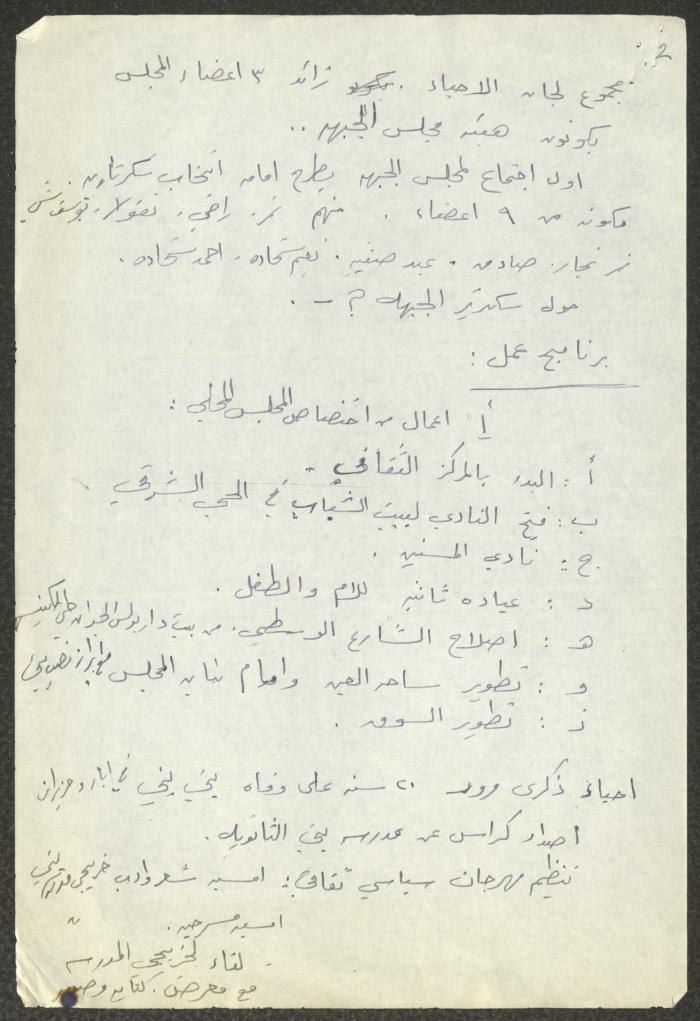 2.
مجموع لجان الاحياء . زائد ٣ اعضاء المجلس
يكونون هيئة مجلس الجبهه ..
اول اجتماع لمجلس الجبهه يطرح امامه انتخاب سكرتاريه
مكونه من ٩ اعضاء . منهم نمر . راضي . نقولا .
نمر نجار . صادق . عبد صفيه . نعيم شحاده . احمد شحاده .
حول سكرتير الجبهه ؟ - .
برنامج عمل :
أ اعمال من اختصاص المجلس المحلي :
أ : البدء بالمركز الثقافي .
ب : فتح النادي لبيت الشباب في الحي الشرقي .
ج : نادي المسنين .
د : عياده ثانيه للام والطفل .
ه : اصلاح الشارع الوسطي . من بيت دار بولس حتى الكنيسه
و : تطوير ساحه العين وامام بناية المجلس
ز : تطوير السوق .
احياء ذكرى مرور ٢٠ سنه على وفاه يني يني في ايار وحزيران
اصدار كراس عن مدرسه يني الثانويه .
تنظيم مهرجان سياسي ثقافي : امسيه شعر وادب خريجي مدرسة يني
امسيه مسرحيه . "
- لقاء لخريجي المدرسه
مع معرض . كتاب وصور